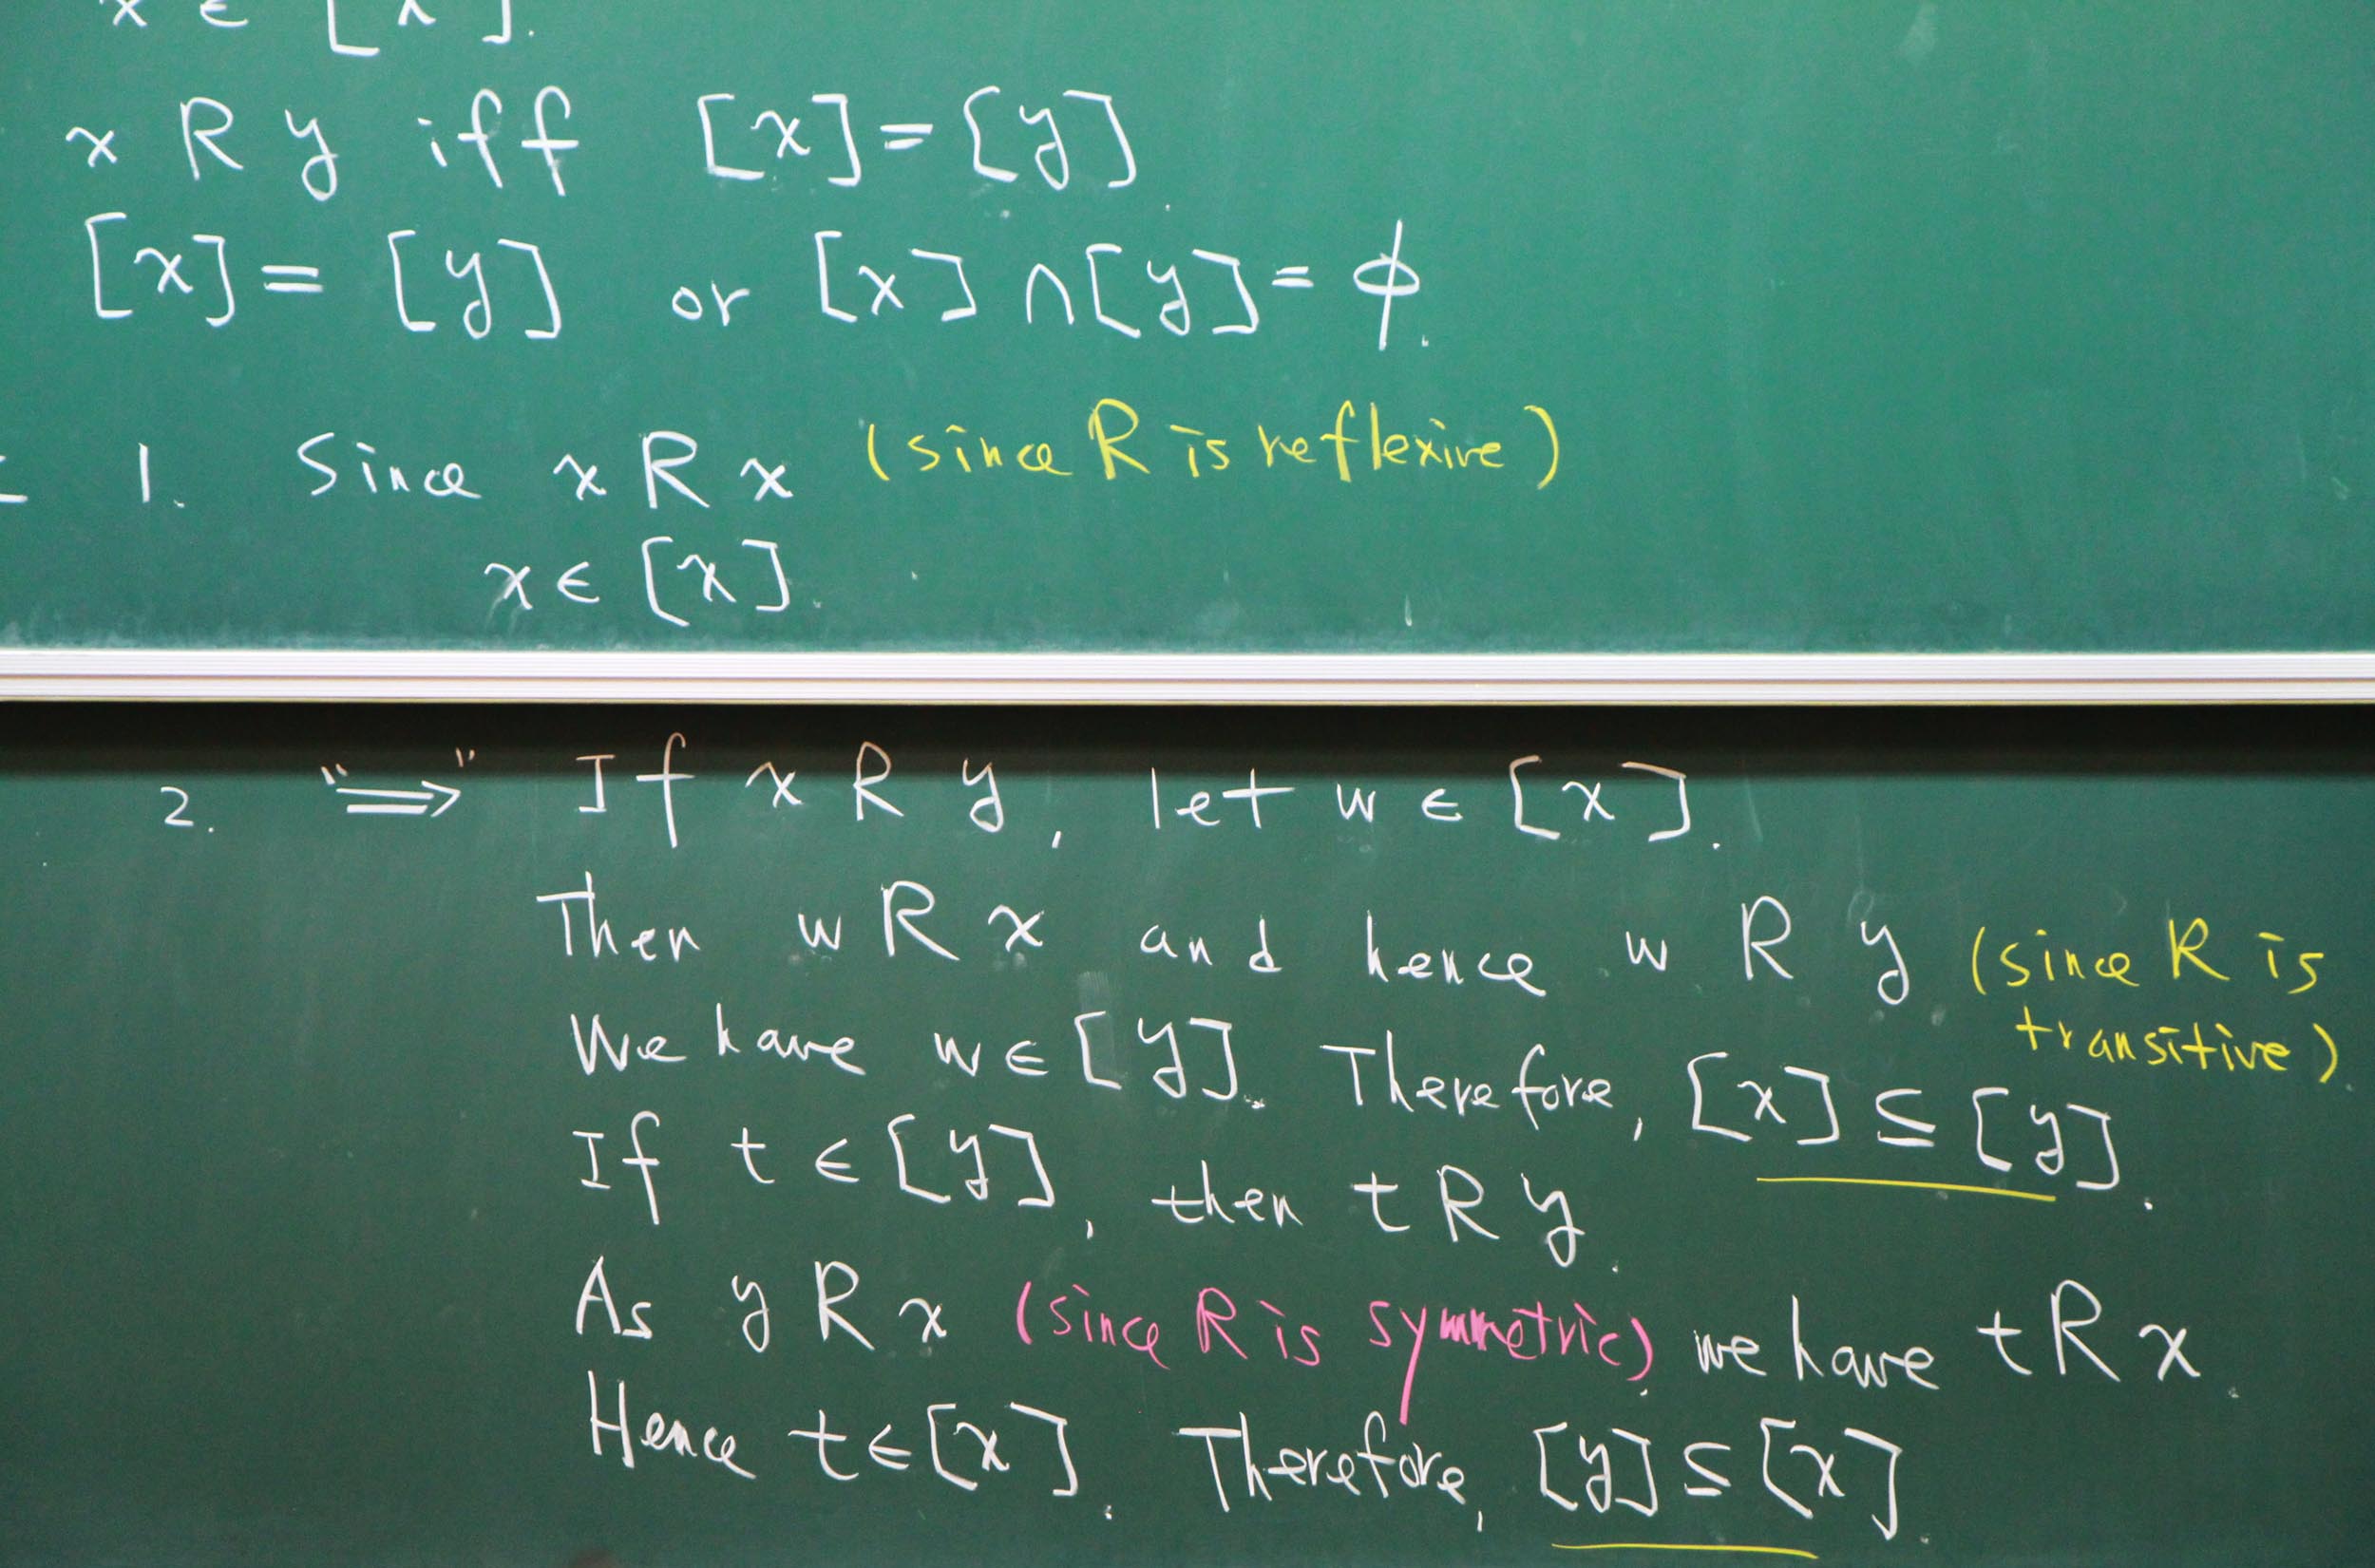 x ∈ [x].
x R y iff [x] = [y].
[x] = [y] or [x] ∩ [y] = ϕ.
1. Since x R x (since R is reflexive)
x ∈ [x].
2. "⇒" If x R y, let w ∈ [x].
Then w R x and hence w R y (since R is
transitive).
We have w ∈ [y]. Therefore, [x] ⊆ [y].
If t ∈ [y], then t R y.
As y R x (since R is symmetric), we have t R x.
Hence t ∈ [x]. Therefore, [y] ⊆ [x].